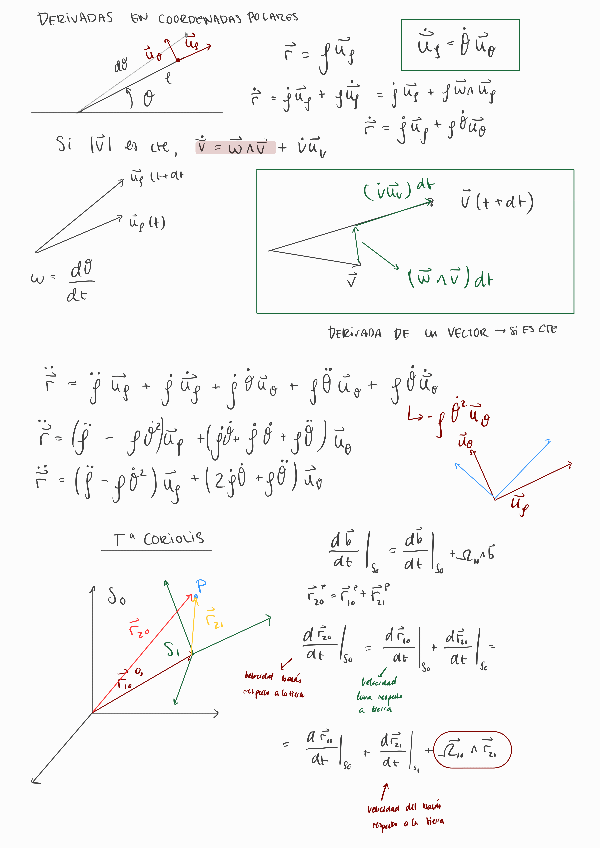 DERIVADAS EN COORDENADAS POLARES
dϑ
u⃗_θ
u⃗_ρ
ρ
θ
r⃗ = ρ u⃗_ρ
u⃗̇_ρ = θ̇ u⃗_θ
r⃗̇ = ρ̇ u⃗_ρ + ρ u⃗̇_ρ = ρ̇ u⃗_ρ + ρ w⃗ ∧ u⃗_ρ
r⃗̇ = ρ̇ u⃗_ρ + ρ θ̇ u⃗_θ
Si |v⃗| es cte, v⃗̇ = w⃗ ∧ v⃗ + v̇ u⃗_v
u⃗_ρ (t+dt
u⃗_ρ (t)
w = dϑ/dt
(v̇ u⃗_v) dt
v⃗ (t + dt)
v⃗
(w⃗ ∧ v⃗) dt
DERIVADA DE UN VECTOR → SI ES CTE
r⃗̈ = ρ̈ u⃗_ρ + ρ̇ u⃗̇_ρ + ρ̇ θ̇ u⃗_θ + ρ θ̈ u⃗_θ + ρ θ̇ u⃗̇_θ
↳ - ρ θ̇² u⃗_θ
r⃗̈ = (ρ̈ - ρ θ̇²) u⃗_ρ + (ρ̇ θ̇ + ρ̇ θ̇ + ρ θ̈) u⃗_θ
r⃗̈ = (ρ̈ - ρ θ̇²) u⃗_ρ + (2 ρ̇ θ̇ + ρ θ̈) u⃗_θ
u⃗_θ
u⃗_ρ
Tª CORIOLIS
db⃗/dt |_S0 = db⃗/dt |_S0 + Ω_10 ∧ b⃗
r⃗_20^P = r⃗_10^P + r⃗_21^P
S0
P
r⃗_20
r⃗_21
S1
O1
r⃗_10
dr⃗_20/dt |_S0 = dr⃗_10/dt |_S0 + dr⃗_21/dt |_S0 =
respecto a la tierra
velocidad
luna respecto
a tierra
= dr⃗_10/dt |_S0 + dr⃗_21/dt |_S1 + Ω⃗_10 ∧ r⃗_21
velocidad del
respecto a la tierra